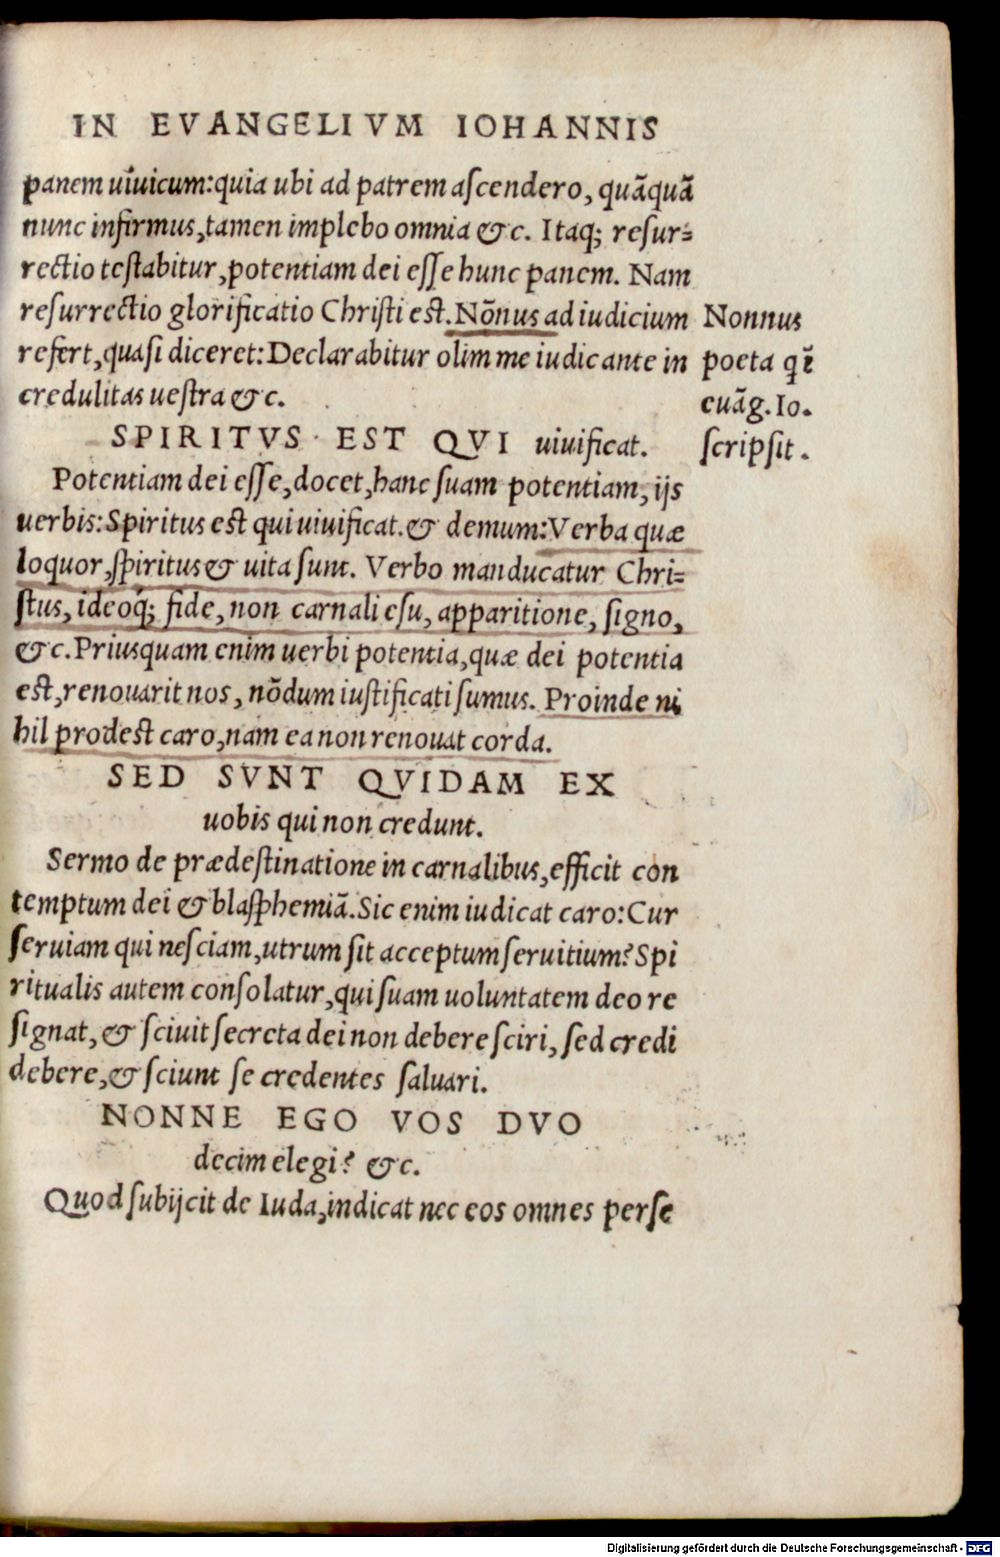 IN EVANGELIVM IOHANNIS
panem uiuicum:quia ubi ad patrem ascendero, quãquã
nunc infirmus,tamen implebo omnia &c. Itaq; resur-
rectio testabitur,potentiam dei esse hunc panem. Nam
resurrectio glorificatio Christi est.Nõnus ad iudicium
refert,quasi diceret:Declarabitur olim me iudicante in
credulitas uestra &c.
Nonnus
poeta qũ
euãg.Io.
scripsit.
SPIRITVS EST QVI uiuificat.
Potentiam dei esse,docet,hanc suam potentiam, ijs
uerbis:Spiritus est qui uiuificat.& demum:Verba quæ
loquor,spiritus & uita sunt. Verbo manducatur Chri-
stus, ideoq; fide, non carnali esu, apparitione, signo,
&c.Priusquam enim uerbi potentia,quæ dei potentia
est,renouarit nos, nõdum iustificati sumus. Proinde ni
hil prodest caro,nam ea non renouat corda.
SED SVNT QVIDAM EX
uobis qui non credunt.
Sermo de prædestinatione in carnalibus,efficit con
temptum dei & blasphemiã.Sic enim iudicat caro:Cur
seruiam qui nesciam,utrum sit acceptum seruitium?Spi
ritualis autem consolatur,qui suam uoluntatem deo re
signat, & sciuit secreta dei non debere sciri, sed credi
debere,& sciunt se credentes saluari.
NONNE EGO VOS DVO
decim elegi? &c.
Quod subijcit de Iuda,indicat nec eos omnes perse
Digitalisierung gefördert durch die Deutsche Forschungsgemeinschaft - DFG